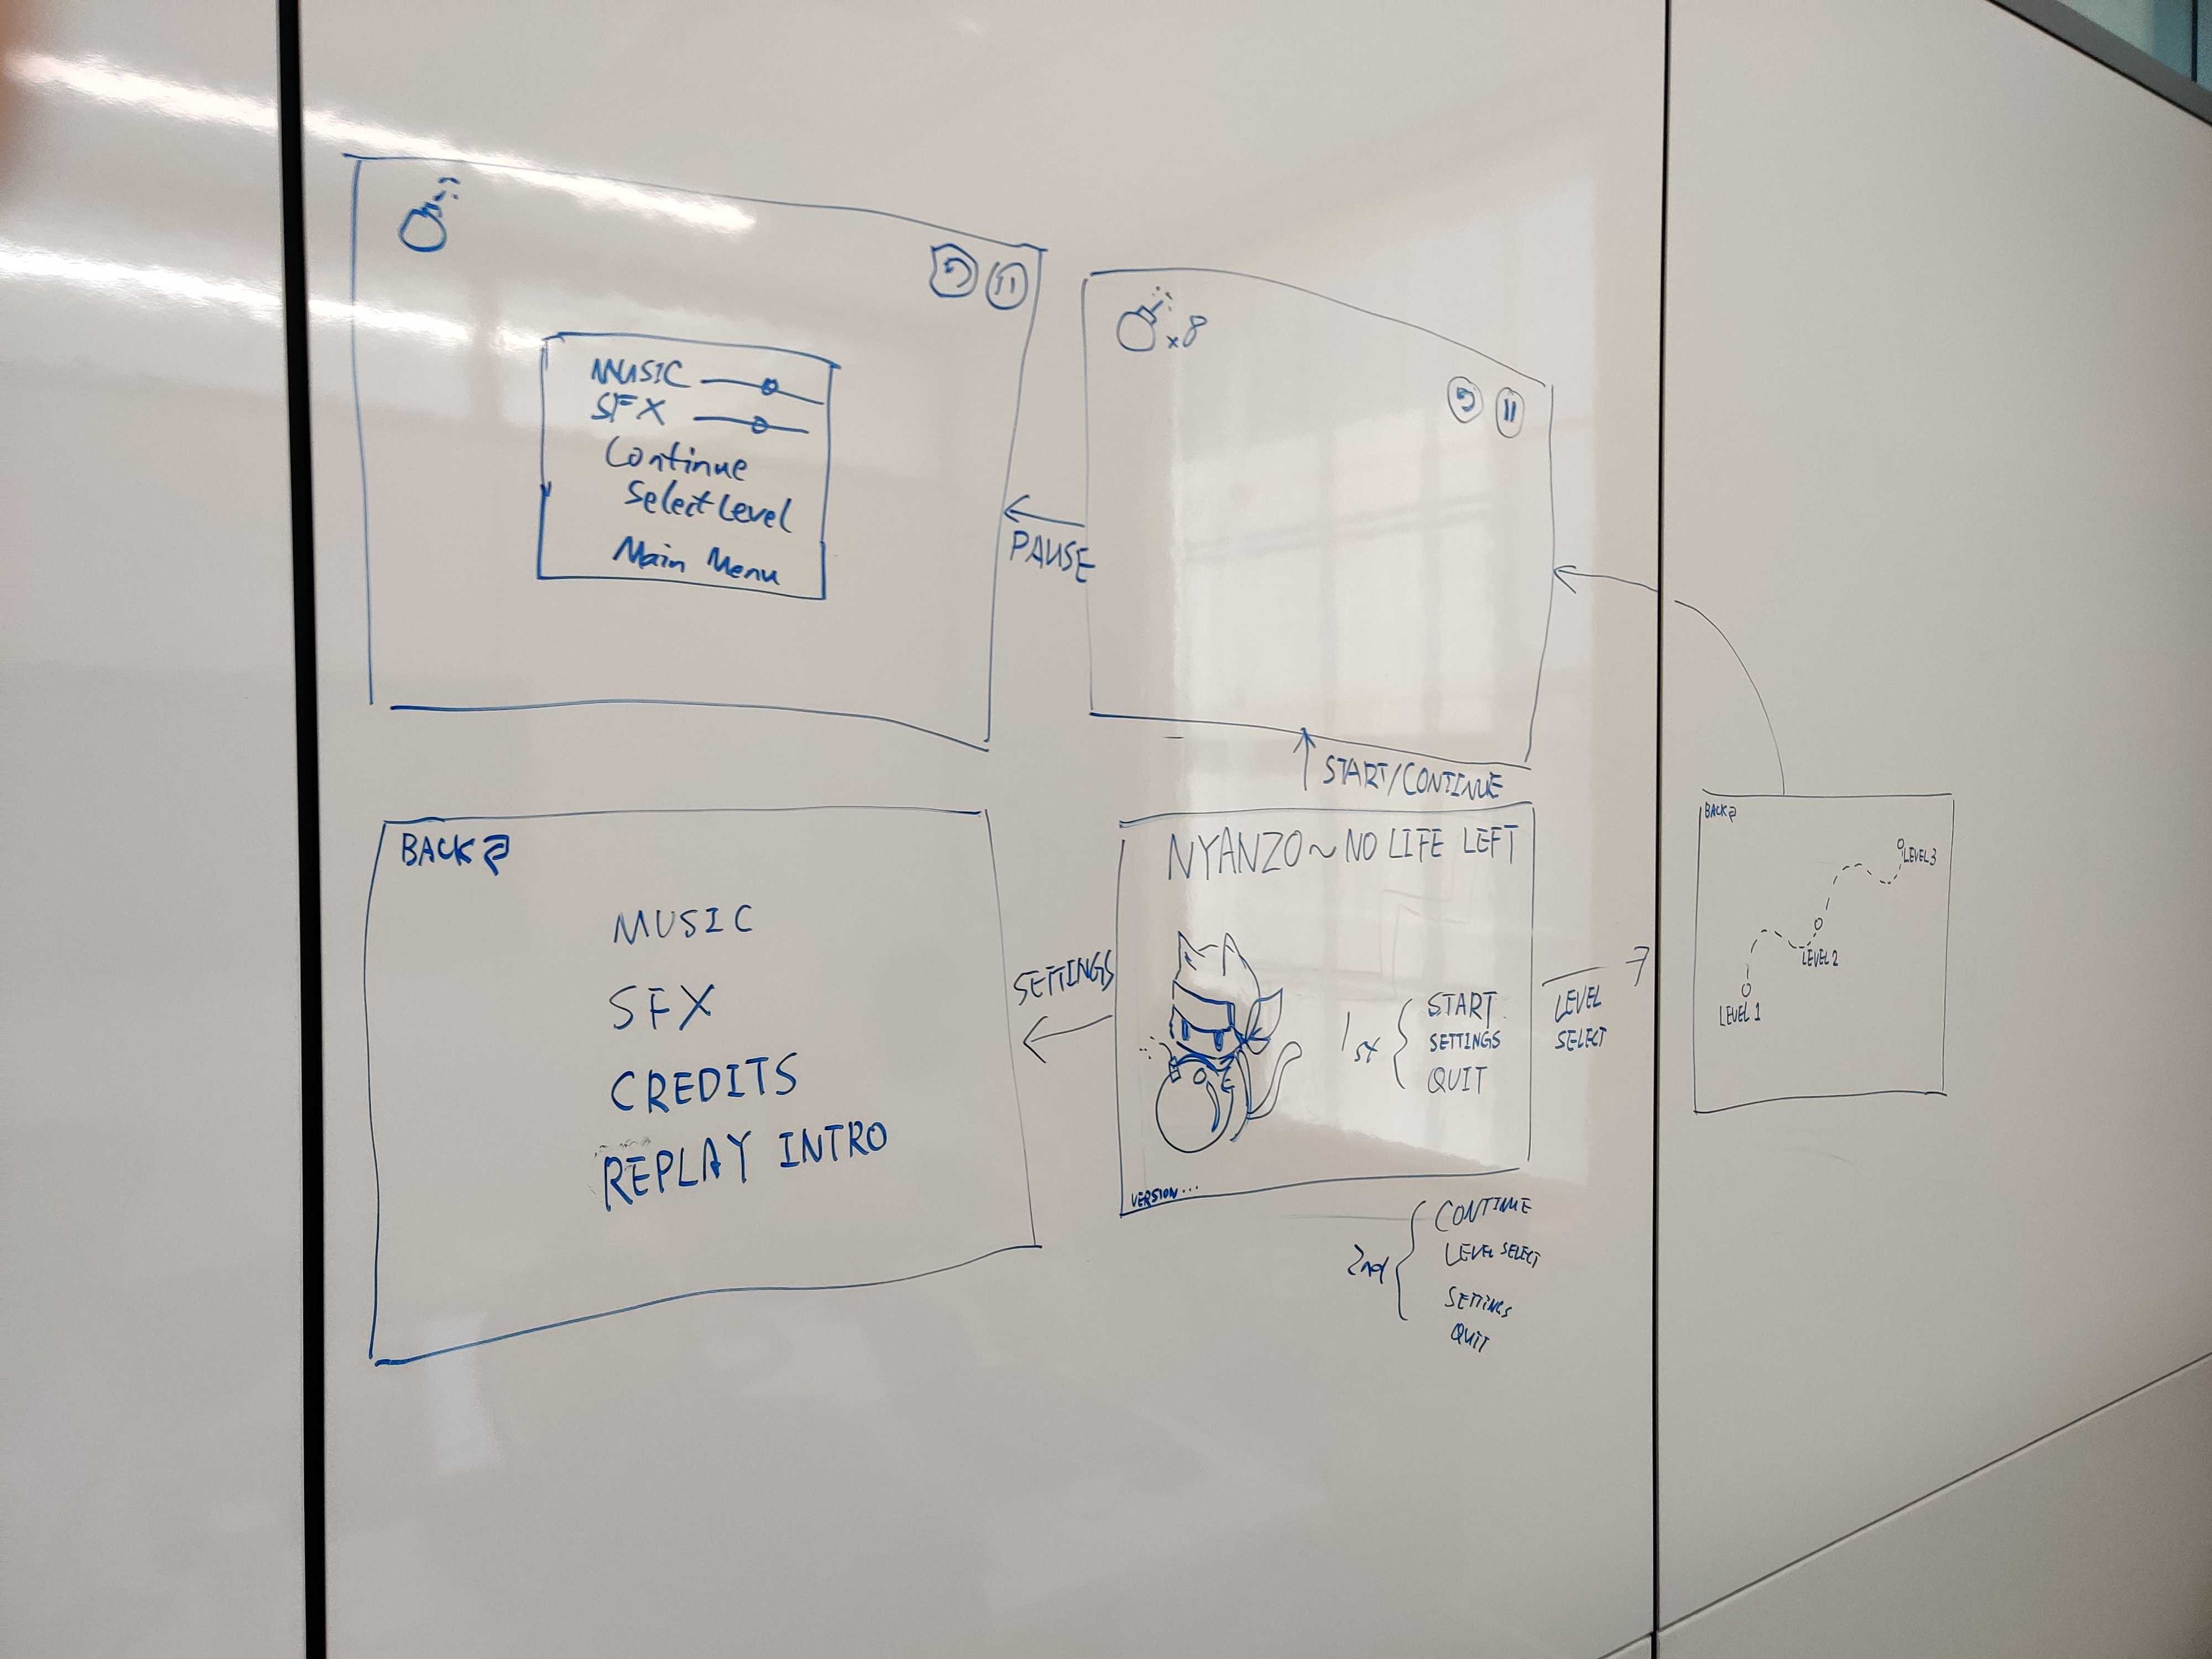 MUSIC
SFX
Continue
Select Level
Main Menu
x8
PAUSE
START/CONTINUE
BACK
MUSIC
SFX
CREDITS
REPLAY INTRO
SETTINGS
NYANZO~NO LIFE LEFT
1st
START
SETTINGS
QUIT
VERSION...
2nd
CONTINUE
LEVEL SELECT
SETTINGS
QUIT
LEVEL
SELECT
BACK
LEVEL 3
LEVEL 2
LEVEL 1